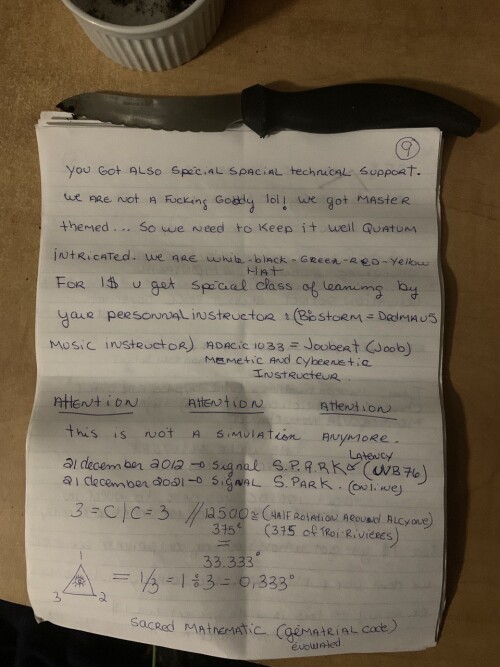 9
YOU GOT ALSO SPECIAL SPACIAL technical SUPPORT.
WE ARE NOT A Fucking Goddy lol! WE GOT MASTER
themed... SO WE NEED to KEEP it WELL QUATUM
iNTRICATED. WE ARE WhitE-black-GREEN-RED-YELLOW
HAT
FOR 1$ U get SPECial class of leaRning by
your personnal instructor : (BioSTORM = DEDMAU5
MUSIC iNSTRUCTOR) ADACIC1033 = Joubert (Joob)
MEMETIC AND CYBERNETIC
INSTRUCTEUR
AttENTION AttENTION AttENTION
this is NOT A SIMULATION ANYMORE.
LATENCY
21 december 2012 → Signal S.P.A.R.K (UVB76)
21 december 2021 → SIGNAL S.PARK. (ONLINE)
3 = C | C = 3 // 12500 ≈ (HALF ROTATION AROUND ALCYONE)
375° (375 of TROI-RIVIÈRES)
=
33.333°
1
= 1/3 = 1 ÷ 3 = 0,333°
3 2
SACRED MATHEMATIC (GÉMATRIAL CODE)
EVOLVATED